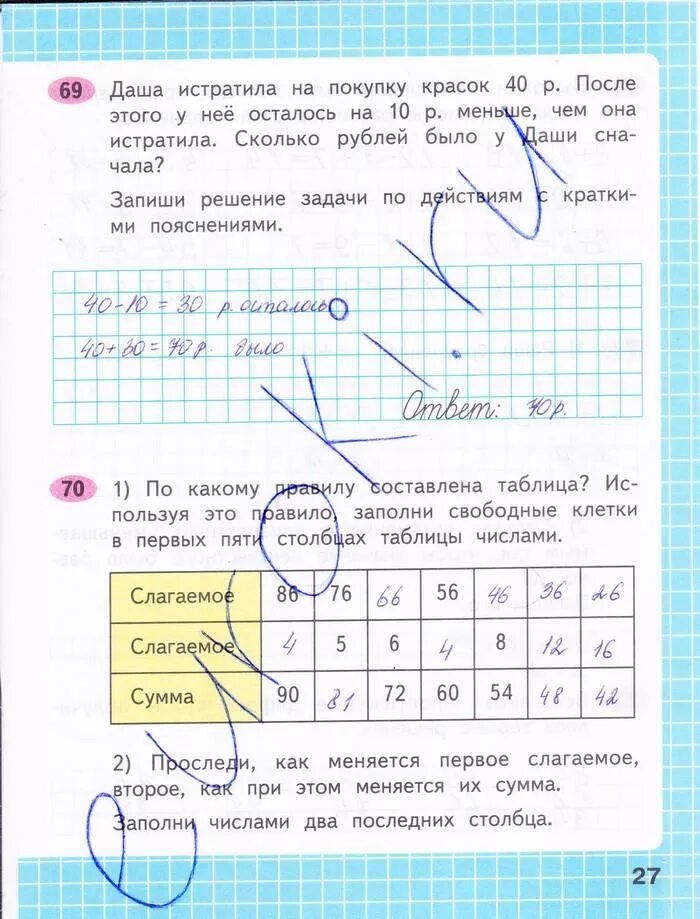 69 Даша истратила на покупку красок 40 р. После
этого у неё осталось на 10 р. меньше, чем она
истратила. Сколько рублей было у Даши сна-
чала?
Запиши решение задачи по действиям с кратки-
ми пояснениями.
40-10 = 30 р. осталось
40+30=70р. было
Ответ: 70р.
70 1) По какому правилу составлена таблица? Ис-
пользуя это правило, заполни свободные клетки
в первых пяти столбцах таблицы числами.
Слагаемое 86 76 66 56 46 36 26
Слагаемое 4 5 6 4 8 12 16
Сумма 90 81 72 60 54 48 42
2) Проследи, как меняется первое слагаемое,
второе, как при этом меняется их сумма.
Заполни числами два последних столбца.
27